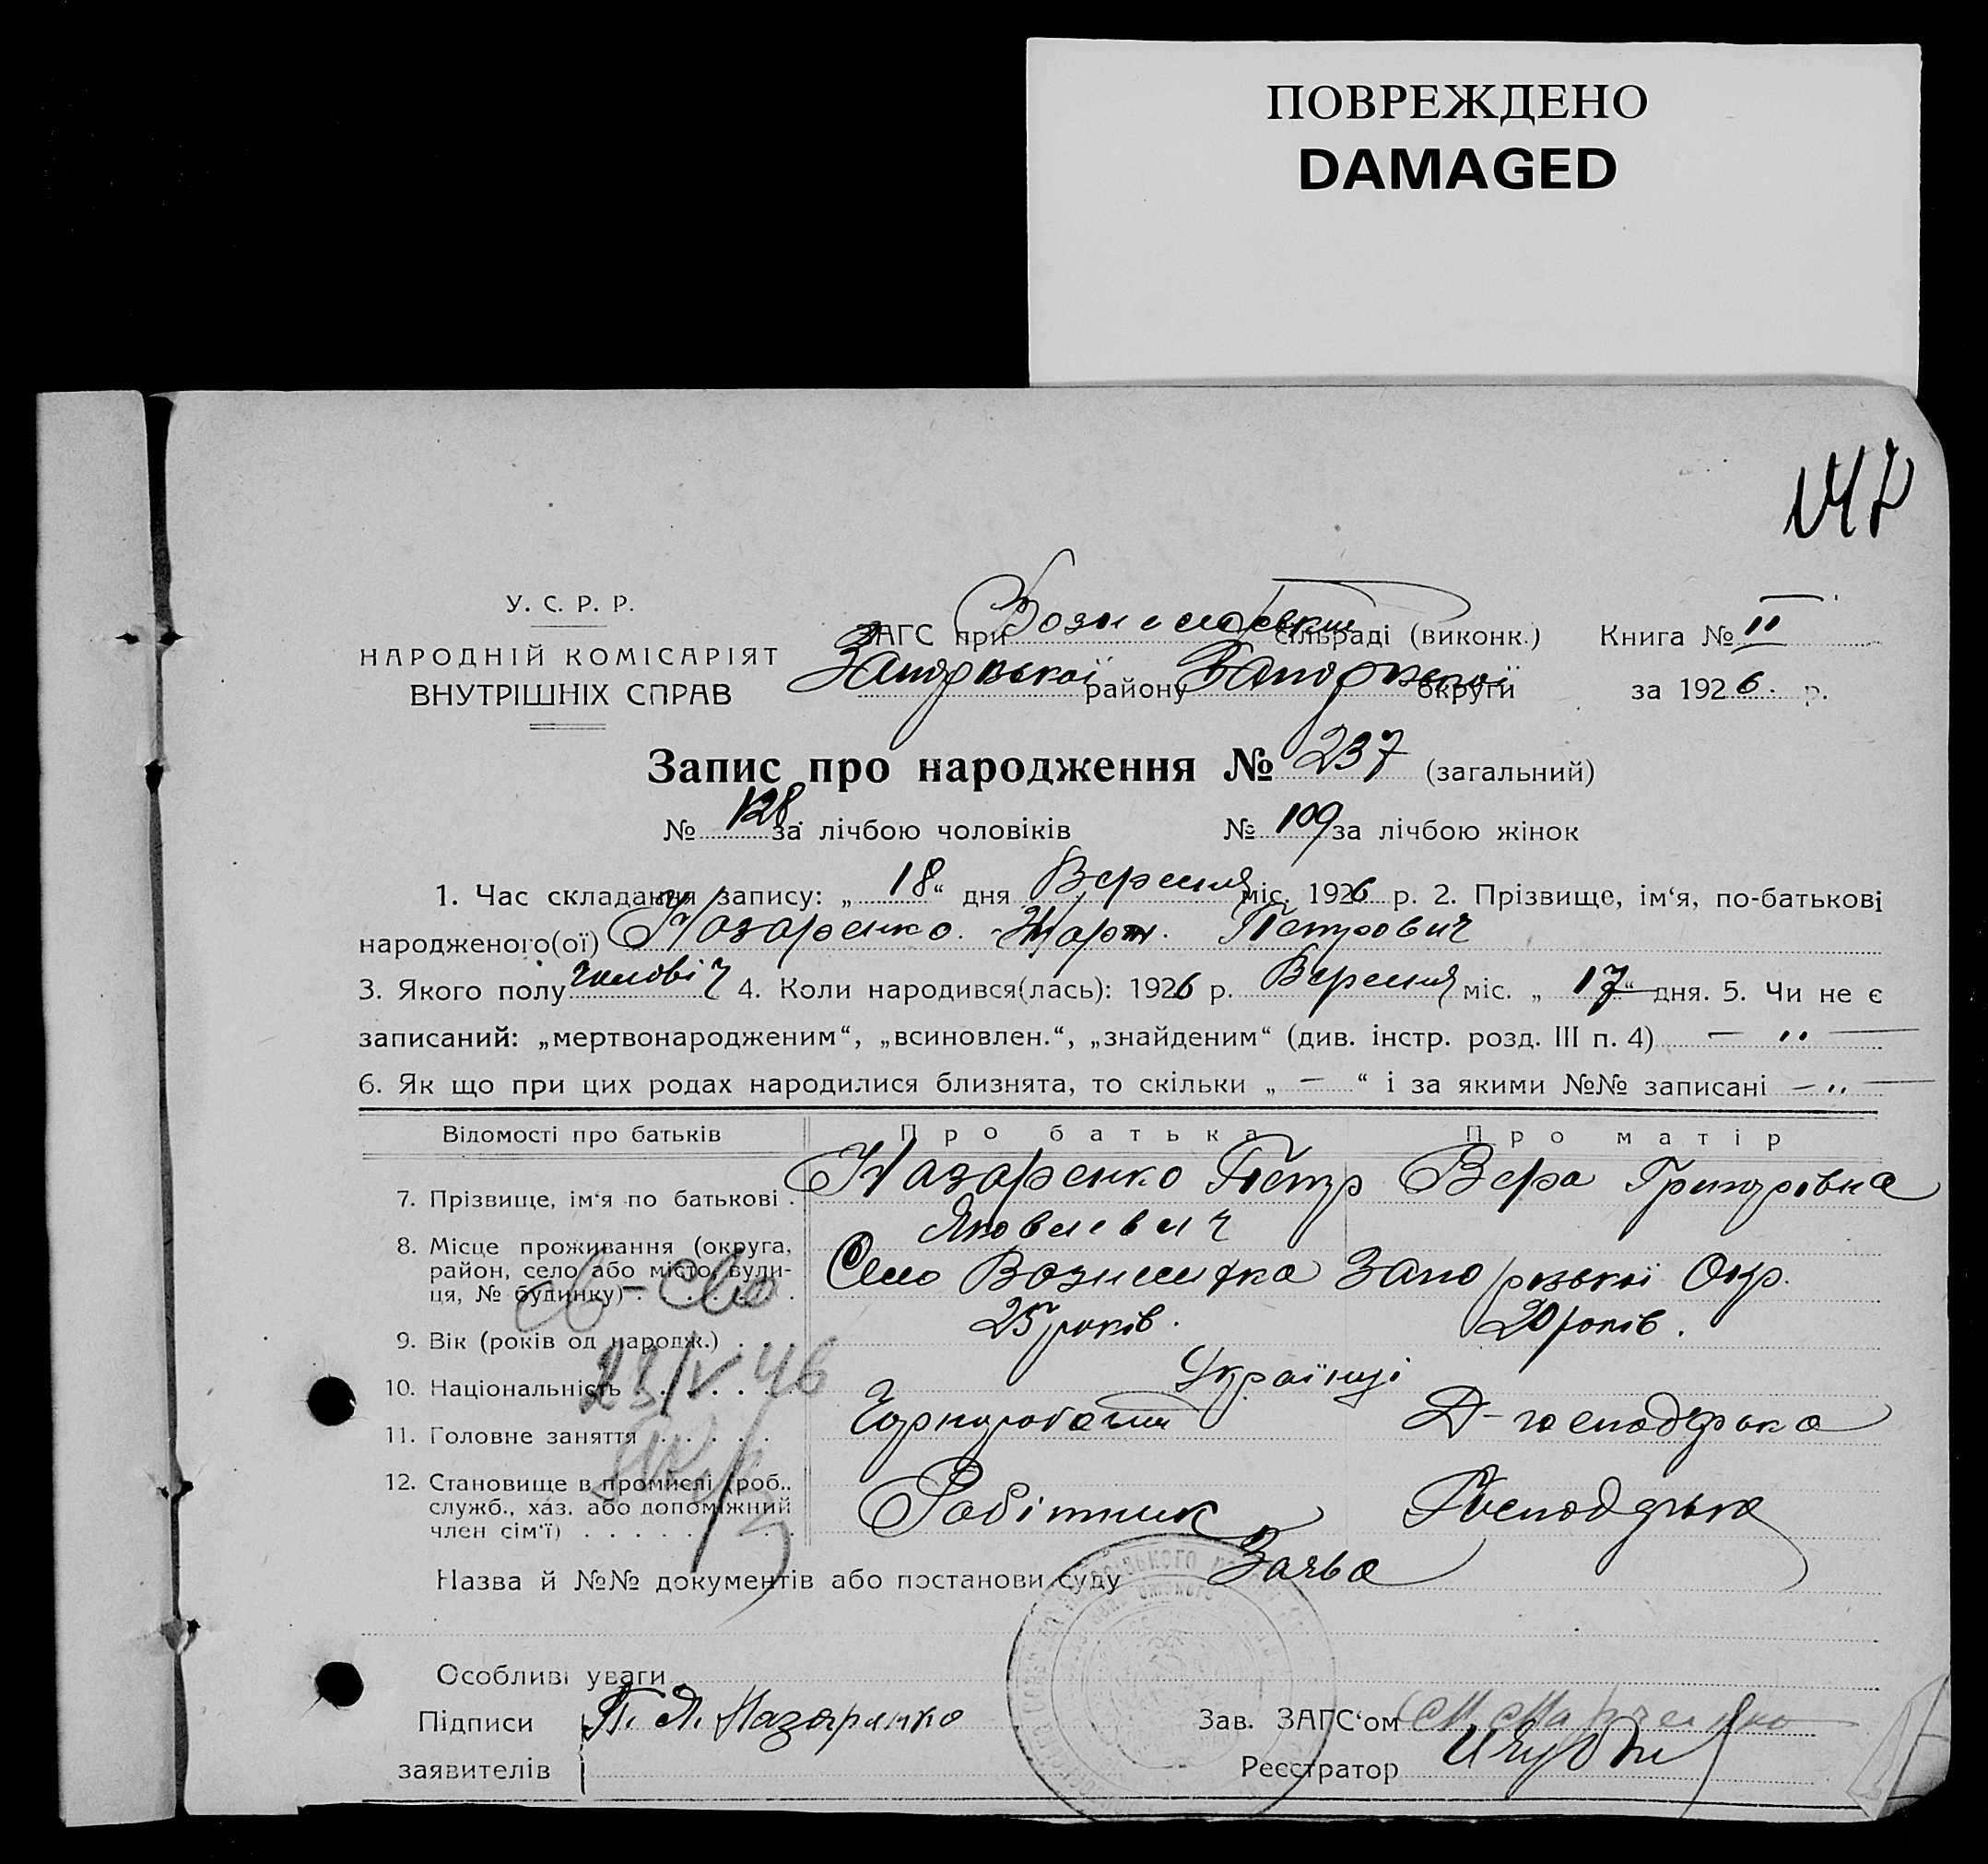 ПОВРЕЖДЕНО
DAMAGED
147
У. С. Р. Р.
НАРОДНІЙ КОМІСАРІЯТ
ВНУТРІШНІХ СПРАВ
ЗАГС при сільраді (виконк.) Книга № II
району округи за 1926 р.
Запис про народження № 237 (загальний)
№ 128 за лічбою чоловіків № 109 за лічбою жінок
1. Час складання запису: „ 18 “ дня Вересня міс. 1926 р. 2. Прізвище, ім‘я, по-батькові
народженого(ої) Назаренко Петрович
3. Якого полу чоловіч 4. Коли народився(лась): 1926 р. Вересня міс. „ 17 “ дня. 5. Чи не є
записаний: „мертвонародженим“, „всиновлен.“, „знайденим“ (див. інстр. розд. III п. 4) — „ —
6. Як що при цих родах народилися близнята, то скільки „ — “ і за якими №№ записані — „ —
Відомості про батьків Про батька Про матір
7. Прізвище, ім‘я по батькові . Назаренко Петр Вера Григоровна
Яковлевич
8. Місце проживання (округа,
район, село або місто, вули-
ця, № будинку) . . . . . . Село Вознесенка Запорозької Окр.
9. Вік (років од народж.) . . 25 років. 20 років.
10. Національність . . . . . Українці
11. Головне заняття . . . . . Чорноробочий Д-господарька
12. Становище в промислі (роб.,
служб., хаз. або допоміжний
член сім‘ї) . . . . . . . . Робітник Господарька
св-во
23/V 46
Назва й №№ документів або постанови суду Заява
Особливі уваги
Підписи П. Я. Назаренко Зав. ЗАГС‘ом
заявителів Реєстратор